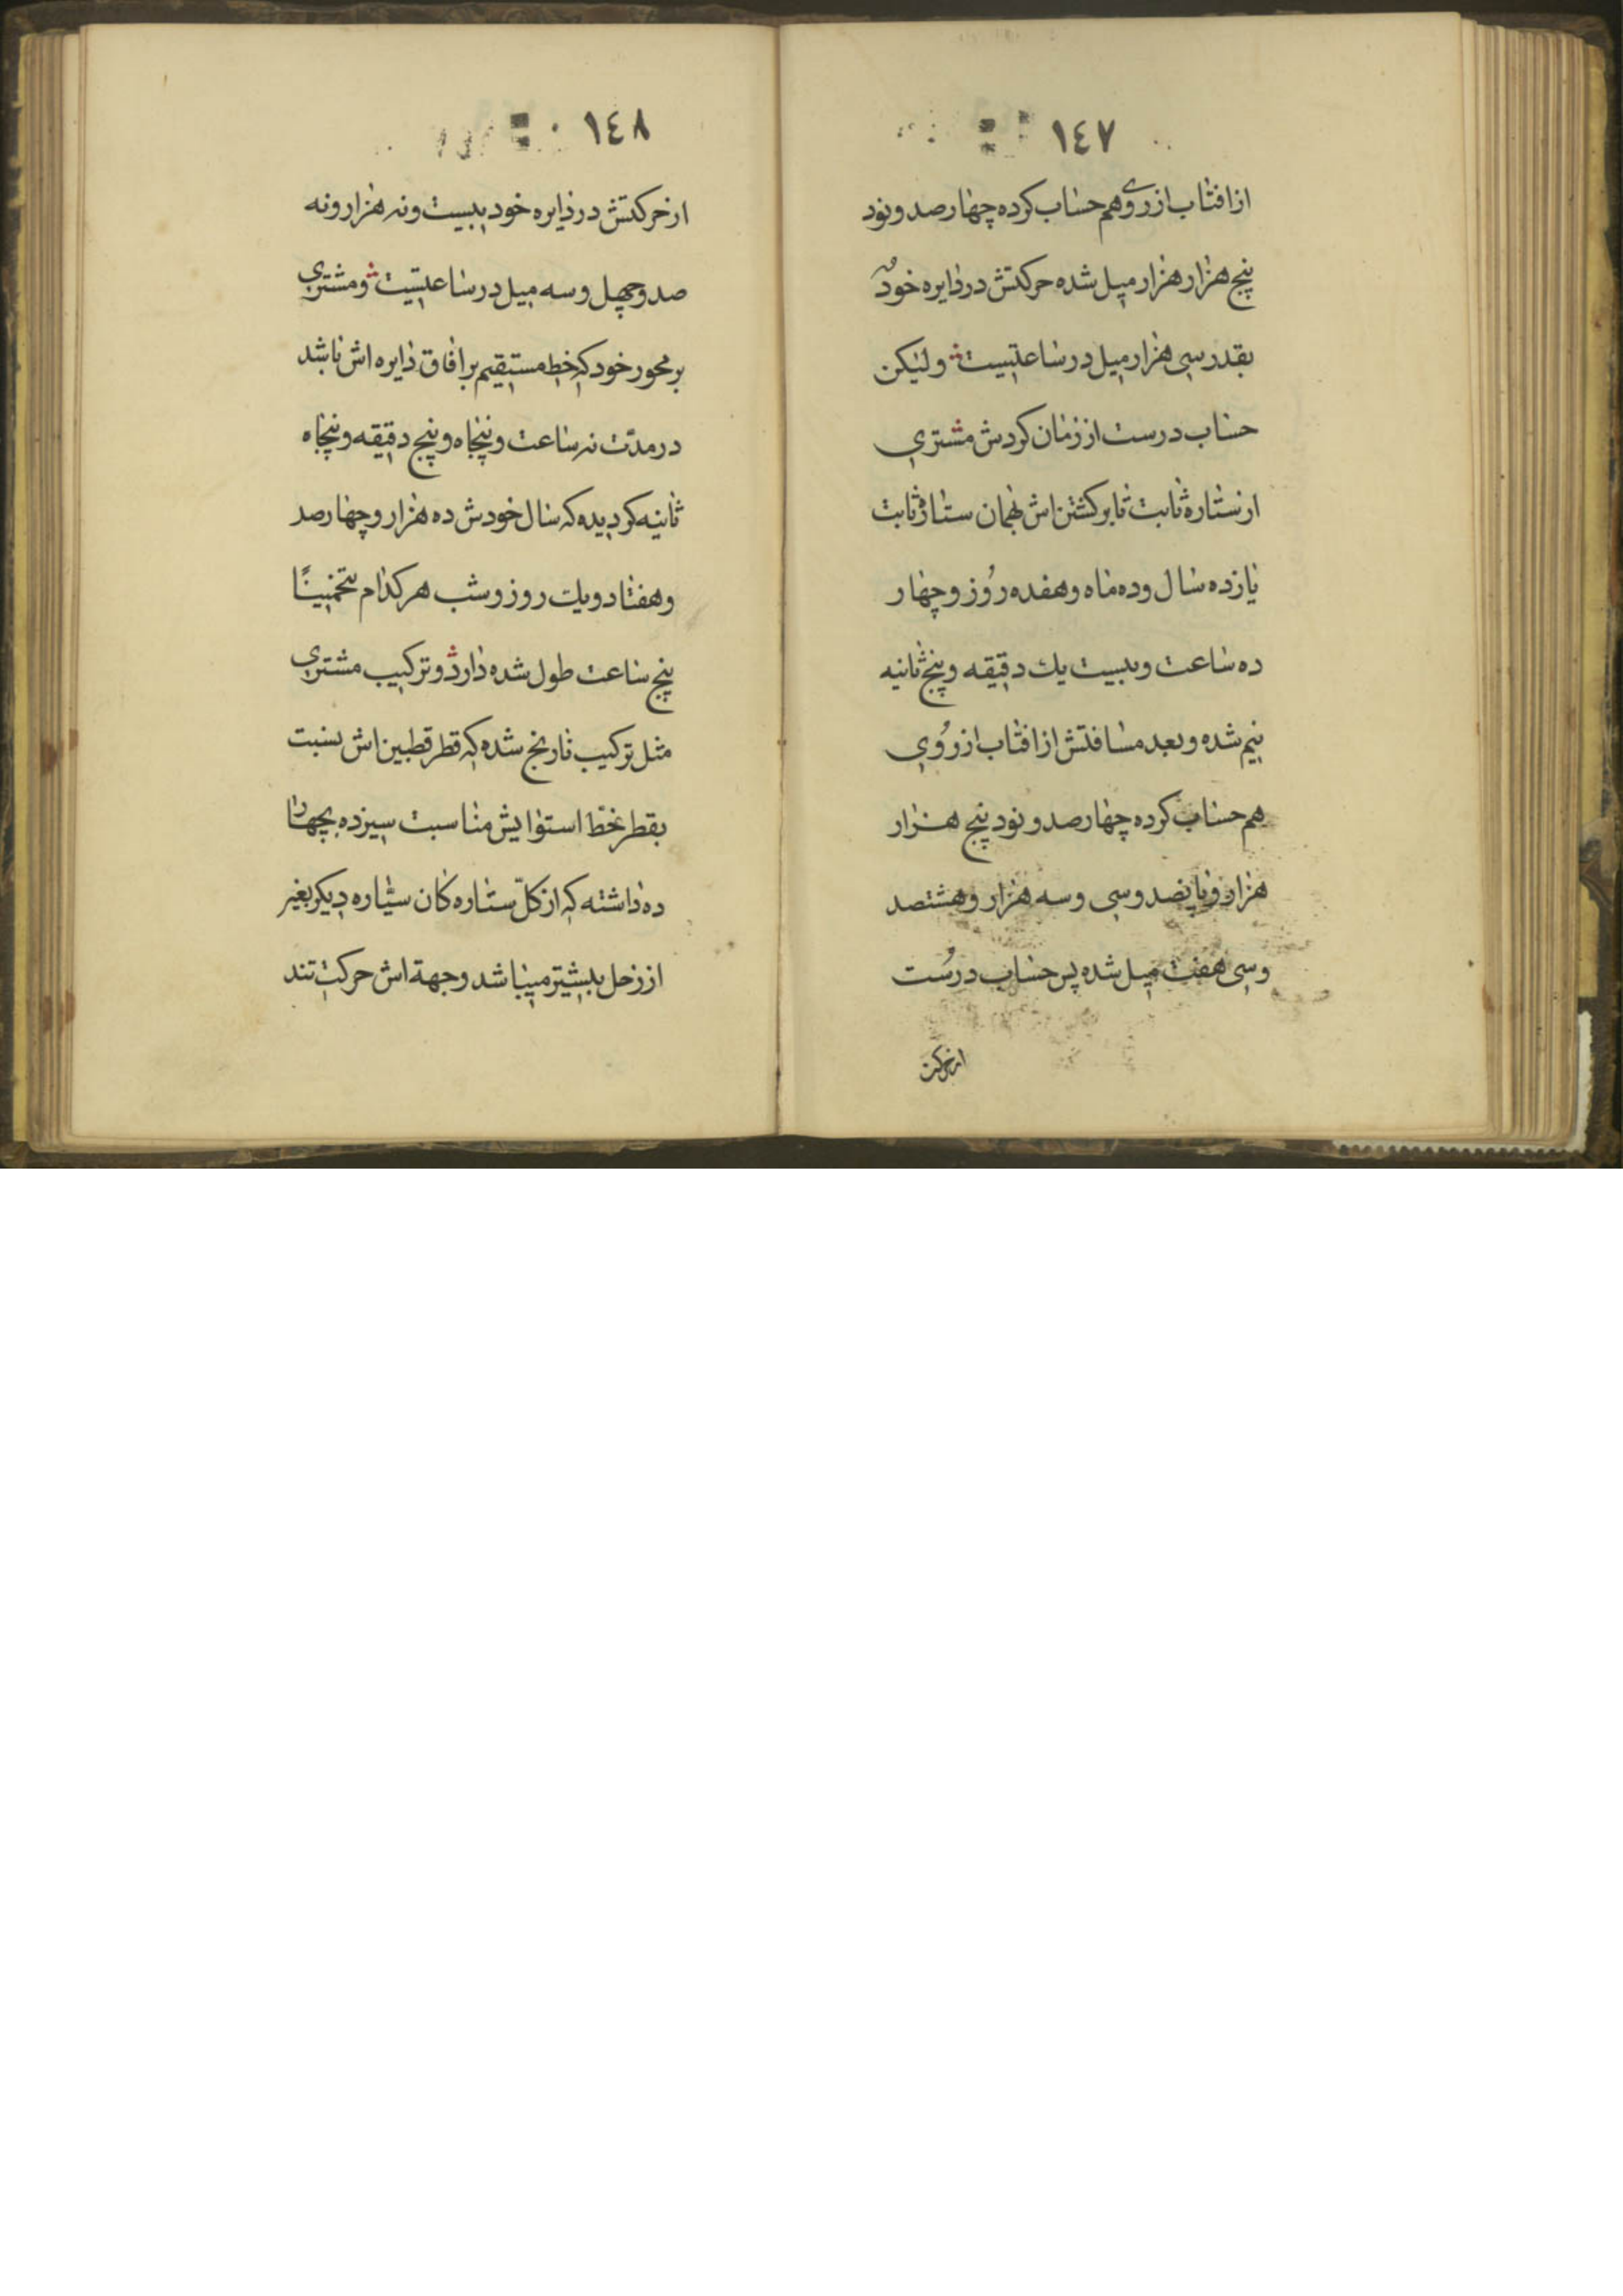 ١٤٧
از افتاب از روی هم حساب کرده چهار صد و نود
پنج هزار هزار میل شده حرکتش در دایره خود
بقدر سی هزار میل در ساعتیست و لیکن
حساب درست از زمان کردش مشتری
از ستاره ثابت تا برکشتن اش بهمان ستاره ثابت
یازده سال و ده ماه و هفده روز و چهار
ده ساعت و بیست یك دقیقه و پنج ثانیه
نیم شده و بعد مسافتش از افتاب از رُوی
هم حساب کرده چهار صد و نود پنج هزار
هزار و پانصد و سی و سه هزار و هشتصد
و سی هفت میل شده پس حساب درُست
از حرکت
١٤٨
از حرکتش در دایره خود بیست و نه هزار و نه
صد و چهل و سه میل در ساعتیست و مشتری
بر محور خود که خط مستقیم بر افاق دایره اش باشد
در مدّت نه ساعت و پنجاه و پنج دقیقه و پنجاه
ثانیه کردیده که سال خودش ده هزار و چهار صد
و هفتاد و یك روز و شب هر کدام تخمینًا
پنج ساعت طول شده دارد و ترکیب مشتری
مثل ترکیب نارنج شده که قطر قطبین اش بنسبت
بقطر خطّ استوایش مناسبت سیزده بچهار
ده داشته که از کلّ ستاره کان سیّاره دیکر بغیر
از زحل بیشتر میباشد و جهة اش حرکت تند